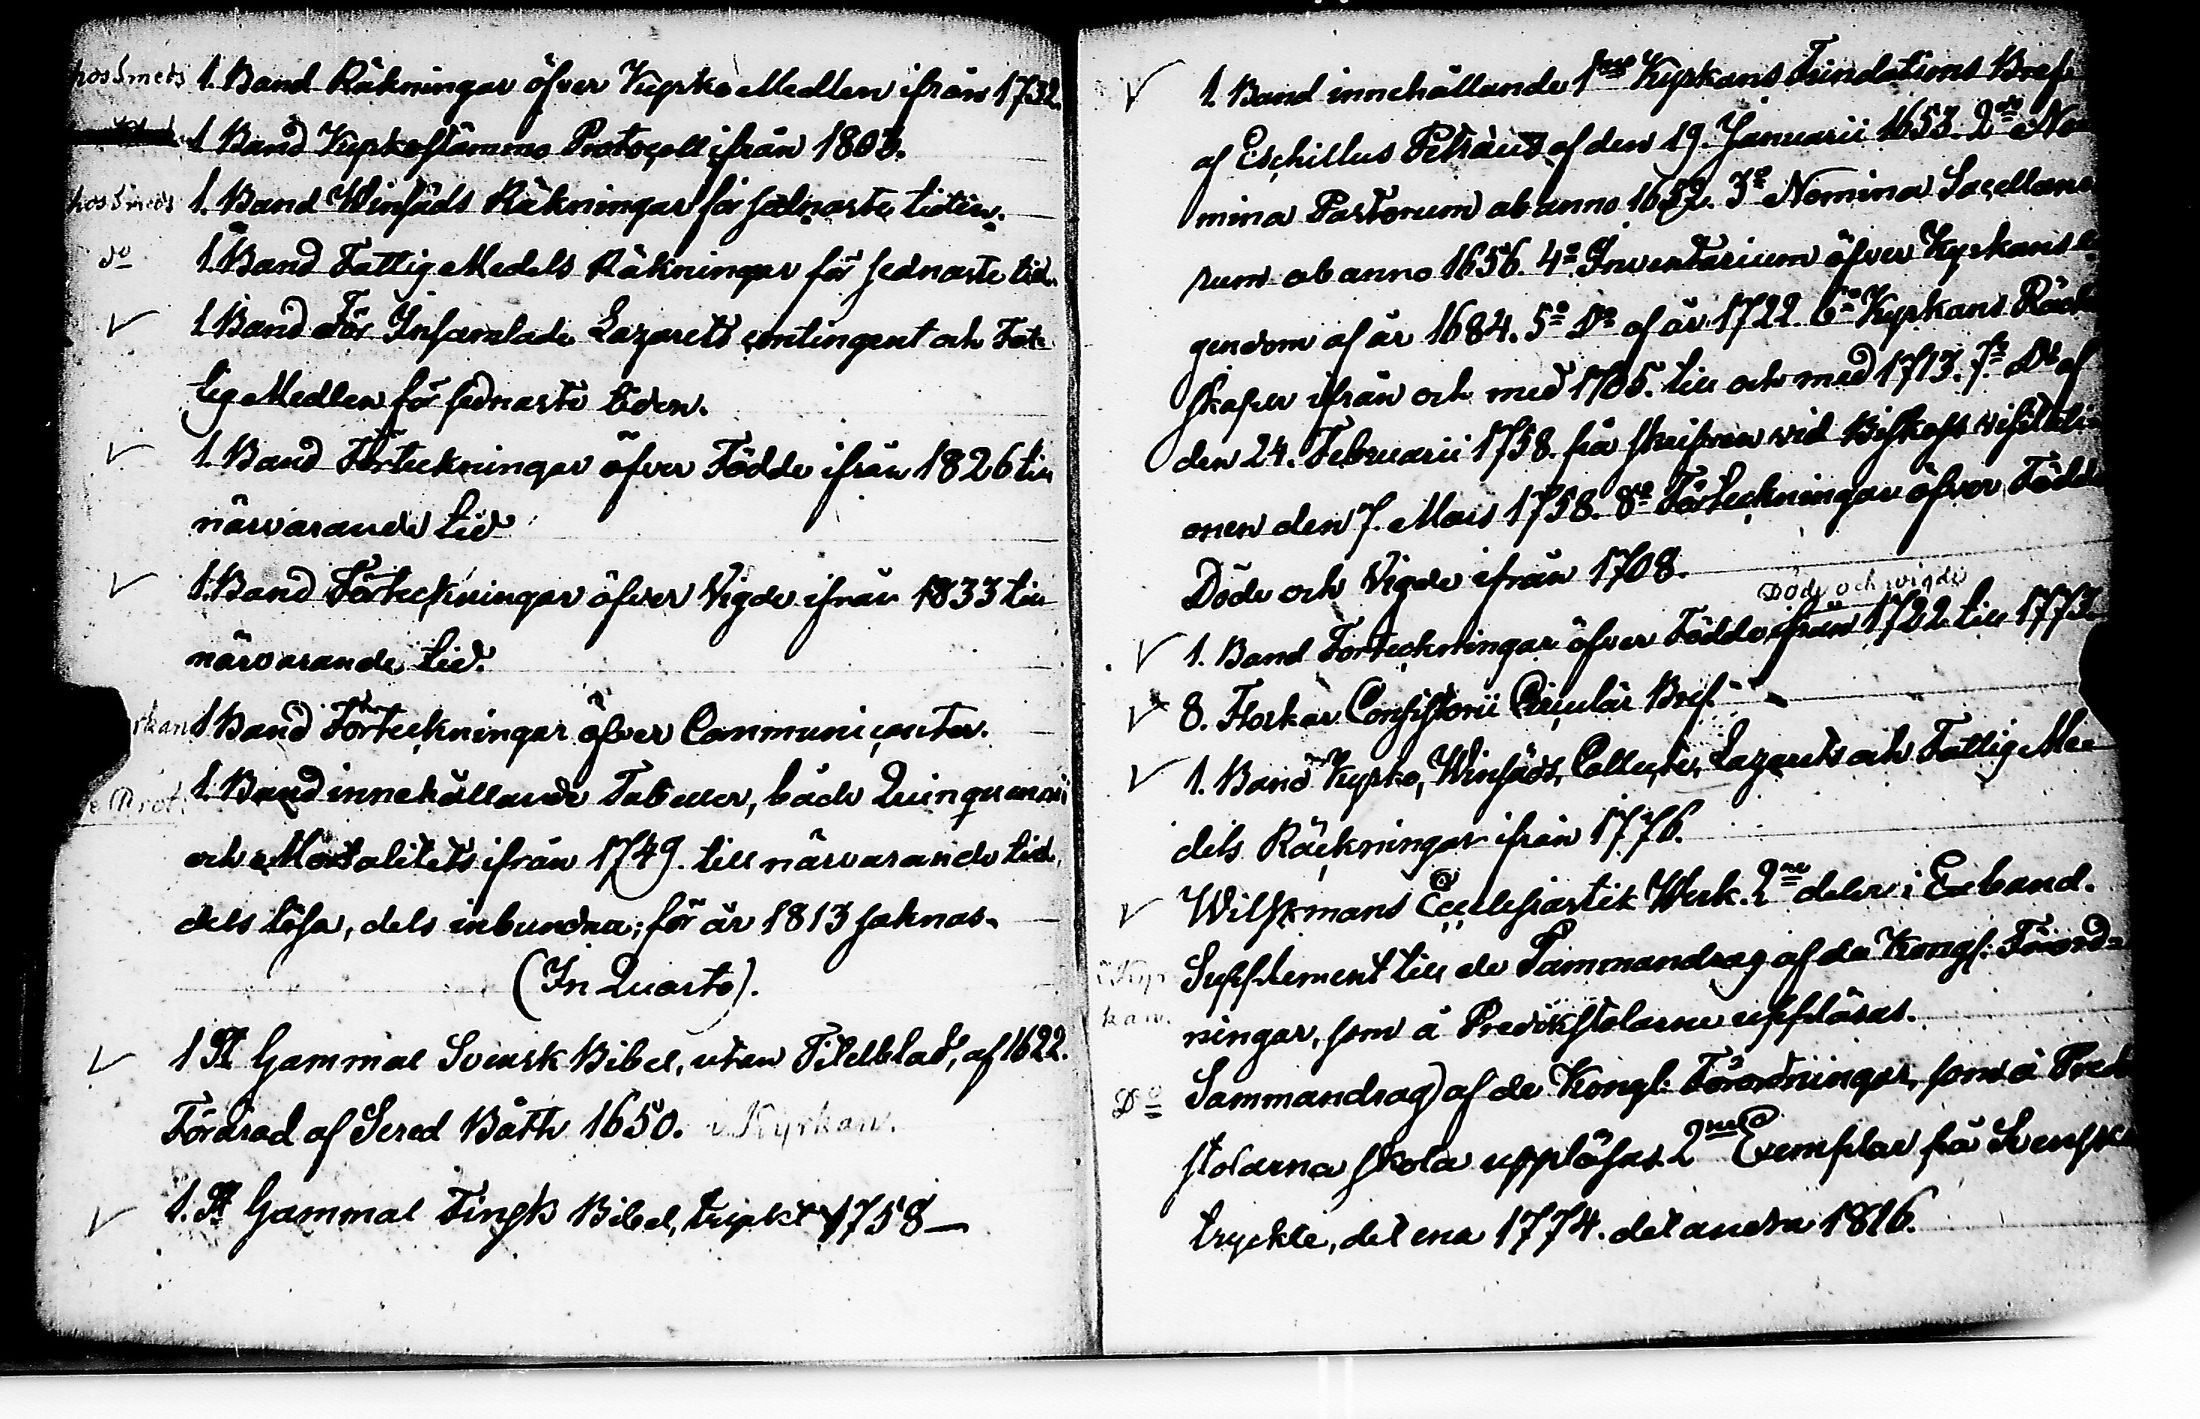 hos Smeds 1. Band Räkningar öfver Kyrko Medlen ifrån 1732.
1 Band Kyrkostämmo Protocoll ifrån 1803.
hos Smeds 1. Band Winsäds Räkningar för sednaste tiden.
do 1. Band Fattig Medels Räkningar för sednaste tid.
✓ 1 Band För Insamlade Lazaretts contingent och Fat-
tig Medlen för sednaste tiden.
✓ 1. Band Förteckningar öfver Födde ifrån 1826 till
närvarande tid
✓ 1. Band Förteckningar öfver Vigde ifrån 1833 till
närvarande tid.
rkan 1 Band Förteckningar öfver Communicanter.
e Prot. 1. Band innehållande Tabeller, både Quinquennii
och Mortalitets ifrån 1749. till närvarande tid,
dels lösa, dels inbundna; för år 1813 saknas.
(In Quarto).
✓ 1 St Gammal Svensk Bibel, utan Titelblad, af 1622.
Förärad af Sered Bååth 1650. i Kyrkan.
✓ 1. St Gammal Finsk Bibel, tryckt 1758 —
✓ 1. Band innehållande 1mo Kyrkans Fundations Bref
af Eschillus Petræus af den 19. Januarii 1653. 2do No
mina Pastorum ab anno 1652. 3o Nomina Sacellano
rum ab anno 1656. 4o Inventarium öfver Kyrkans E
gendom af år 1684. 5o Do af år 1722. 6o Kyrkans Räken
skaper ifrån och med 1705. till och med 1713. 7o Do af
den 24. Februarii 1758. från skrifven vid Biskops visitati-
onen den 7. Mars 1758. 8o Förteckningar öfver Födde
Döde och Vigde ifrån 1708.
Döde och vigde
✓ 1. Band Forteckningar öfver Födde ifrån 1722 till 1773
✓ 8. Flockar Consistorii Circulär Bref
✓ 1. Band Kyrko, Winsäds, Collecte, Lazaretts och Fattig Me-
dels Räckningar ifrån 1776.
✓ Wilskmans Ecclesiastik Werk. 2ne delar i Ett band.
i Kyr Supplement till de Sammandrag af de Kongl: Förord-
kan. ningar, som å Predikstolarne uppläsas.
Do Sammandrag af de Kongl: Förordningar, som å Predik
stolarna skola uppläsas. 2ne Exemplar på Svenska
tryckte, det ena 1774. det andra 1816.